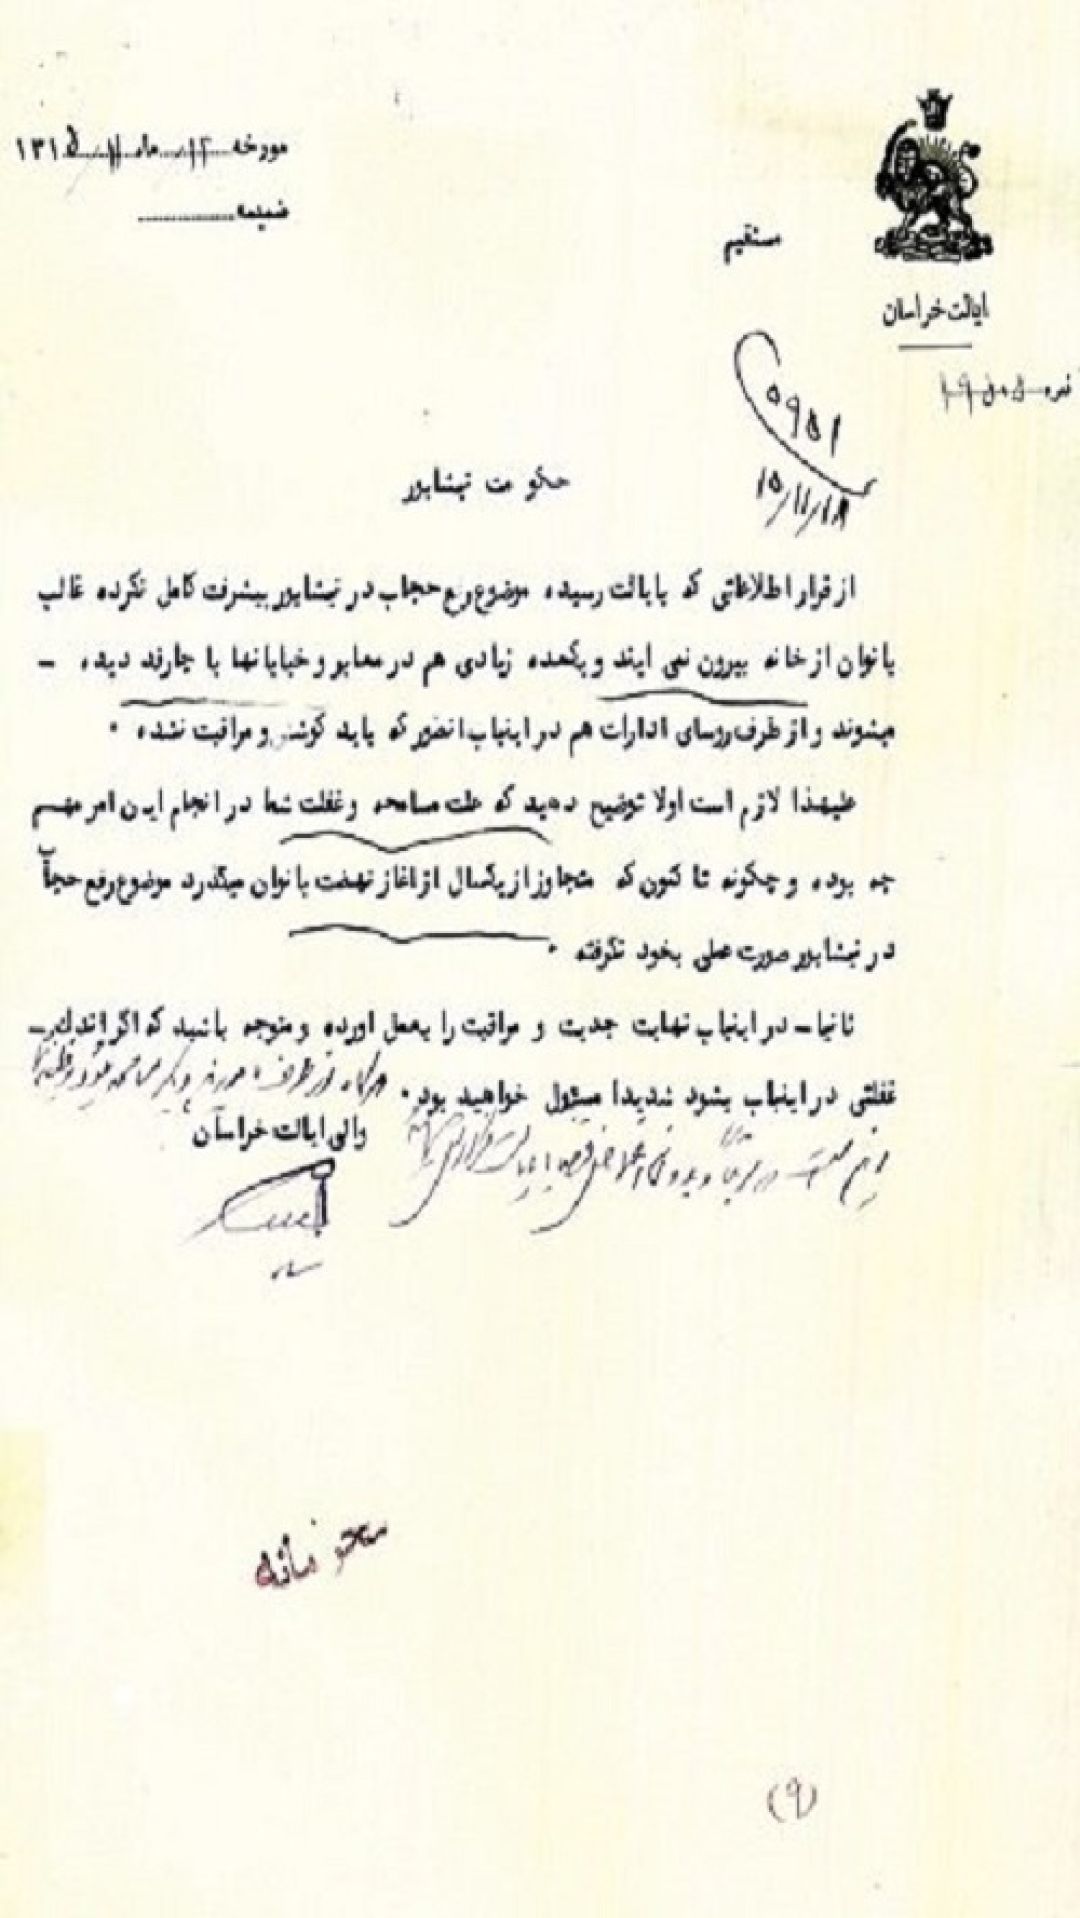 مورخه ۱۲ ماه ۱۱ ۱۳۱۵
ضمیمه
مستقیم
ایالت خراسان
نمره
۵۹۵۱
۱۵/۱۱/۱۸
حکومت نیشابور
از قرار اطلاعاتی که بایالت رسیده موضوع رفع حجاب در نیشابور پیشرفت کامل نکرده غالب
بانوان از خانه بیرون نمی ایند و یکعده زیادی هم در معابر و خیابانها با چارقد دیده -
میشوند و از طرف روسای ادارات هم در اینباب انطور که باید کوشش و مراقبت نشده .
علیهذا لازم است اولا توضیح دهید که علت مسامحه و غفلت شما در انجام این امر مهم
چه بوده و چگونه تا کنون که متجاوز از یکسال از اغاز نهضت بانوان میگذرد موضوع رفع حجاب
در نیشابور صورت عملی بخود نگرفته .
ثانیا - در اینباب نهایت جدیت و مراقبت را بعمل اورده و متوجه باشید که اگر اندک -
غفلتی در اینباب بشود شدیدا مسئول خواهید بود . هرگاه از طرف مامورین دیگر مسامحه
والی ایالت خراسان
محرمانه
(۹)